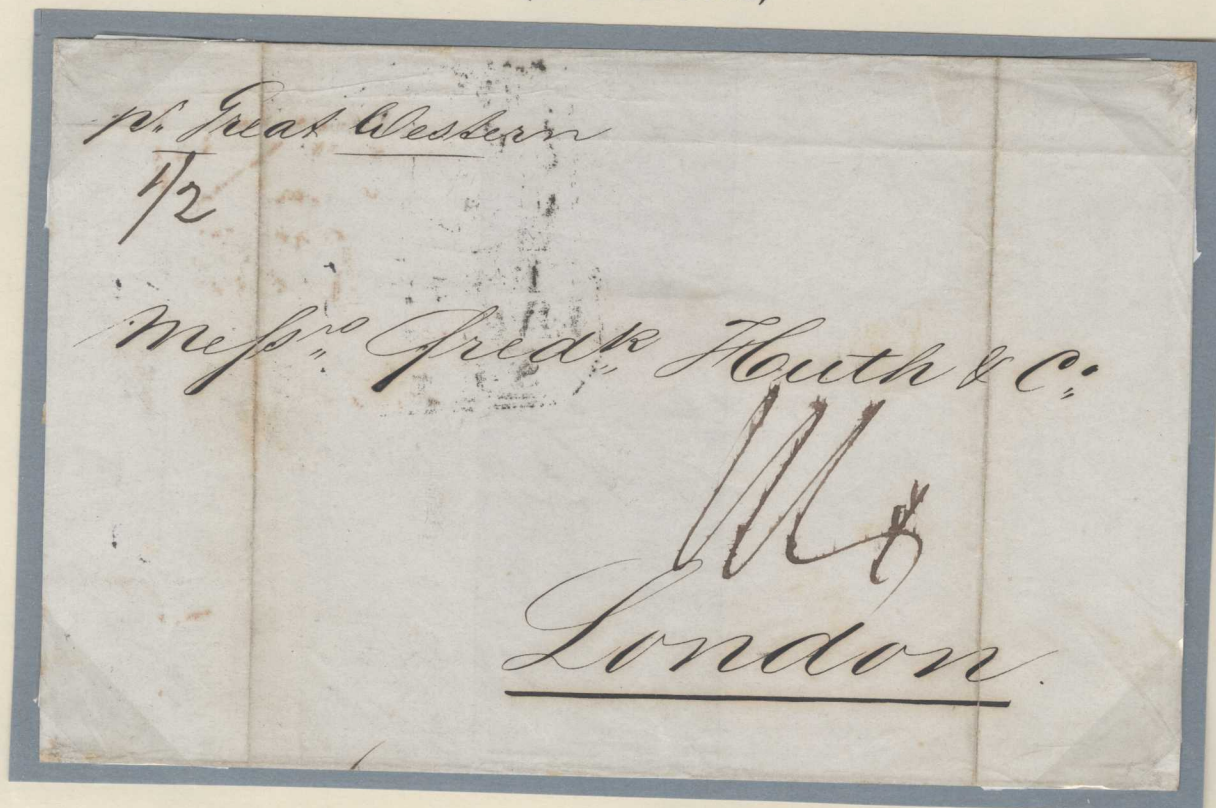 pr. Great Western
1/2
Messrs. Fredk. Huth & Co.
London.